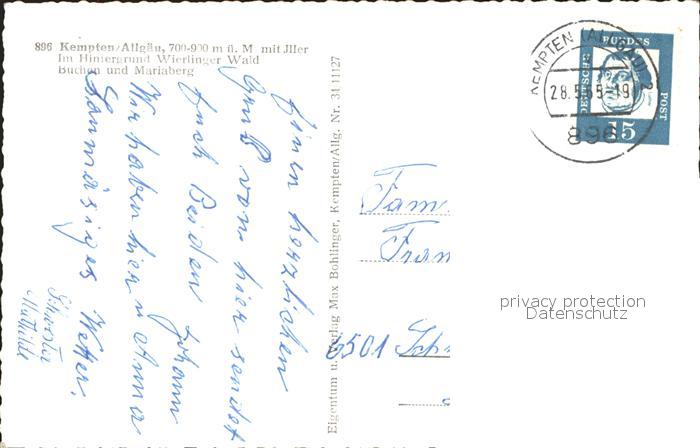 896 Kempten/Allgäu, 700-900 m ü. M mit Jller
Im Hintergrund Wierlinger Wald
Buchen und Mariaberg
Einen herzlichen
Gruß von hier sendet
Euch Beiden Johann
Wir haben hier n
Wetter.
Schwester
Mathilde
Eigentum u. Verlag Max Bohlinger, Kempten/Allg. Nr. 31 11127
KEMPTEN (ALLGÄU) 2
28.5.65-19
896
DEUTSCHE
BUNDES
POST
15
Fam.
Fran
6501 Sch
privacy protection
Datenschutz